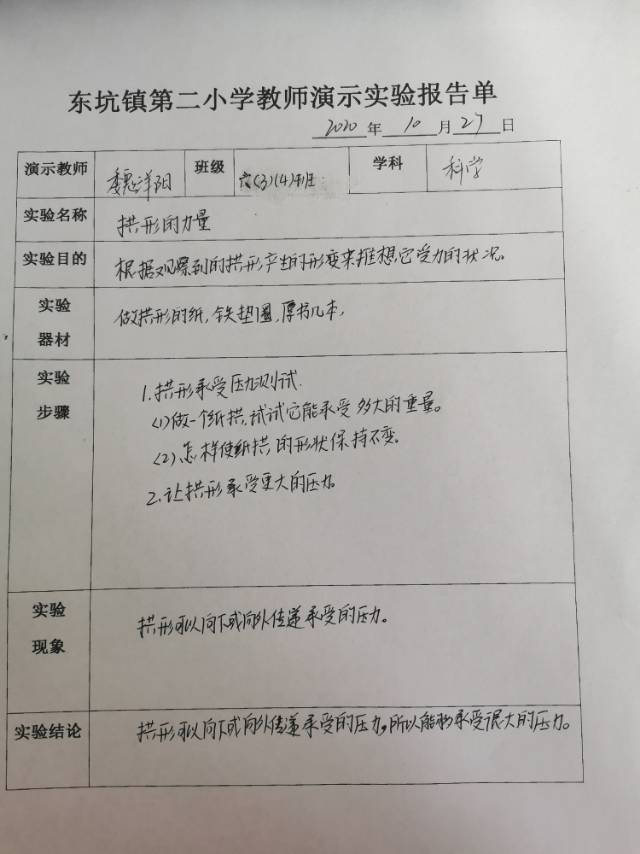 东坑镇第二小学教师演示实验报告单
2020 年 10 月 27 日
演示教师 魏洋阳 班级 六(3)(4)班 学科 科学
实验名称 拱形的力量
实验目的 根据观察到的拱形产生的形变来推想它受力的状况。
实验
器材
做拱形的纸,铁垫圈,厚书几本,
实验
步骤
1.拱形承受压力测试.
(1)做一个纸拱,试试它能承受多大的重量。
(2)怎样使纸拱的形状保持不变。
2.让拱形承受更大的压力。
实验
现象
拱形可以向下或向外传递承受的压力。
实验结论 拱形可以向下或向外传递承受的压力,所以能够承受很大的压力。